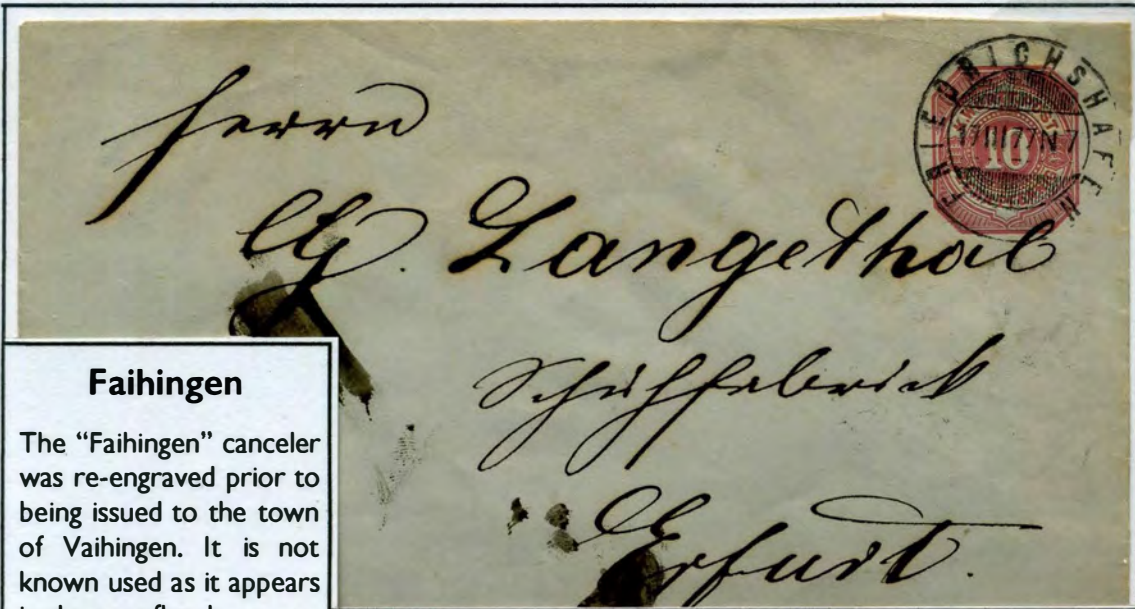 FRIEDRICHSHAFEN
17 III 77 N 7
10
Herrn
Langethal
Schuhfabrick
Erfurt.
Faihingen
The “Faihingen” canceler
was re-engraved prior to
being issued to the town
of Vaihingen. It is not
known used as it appears